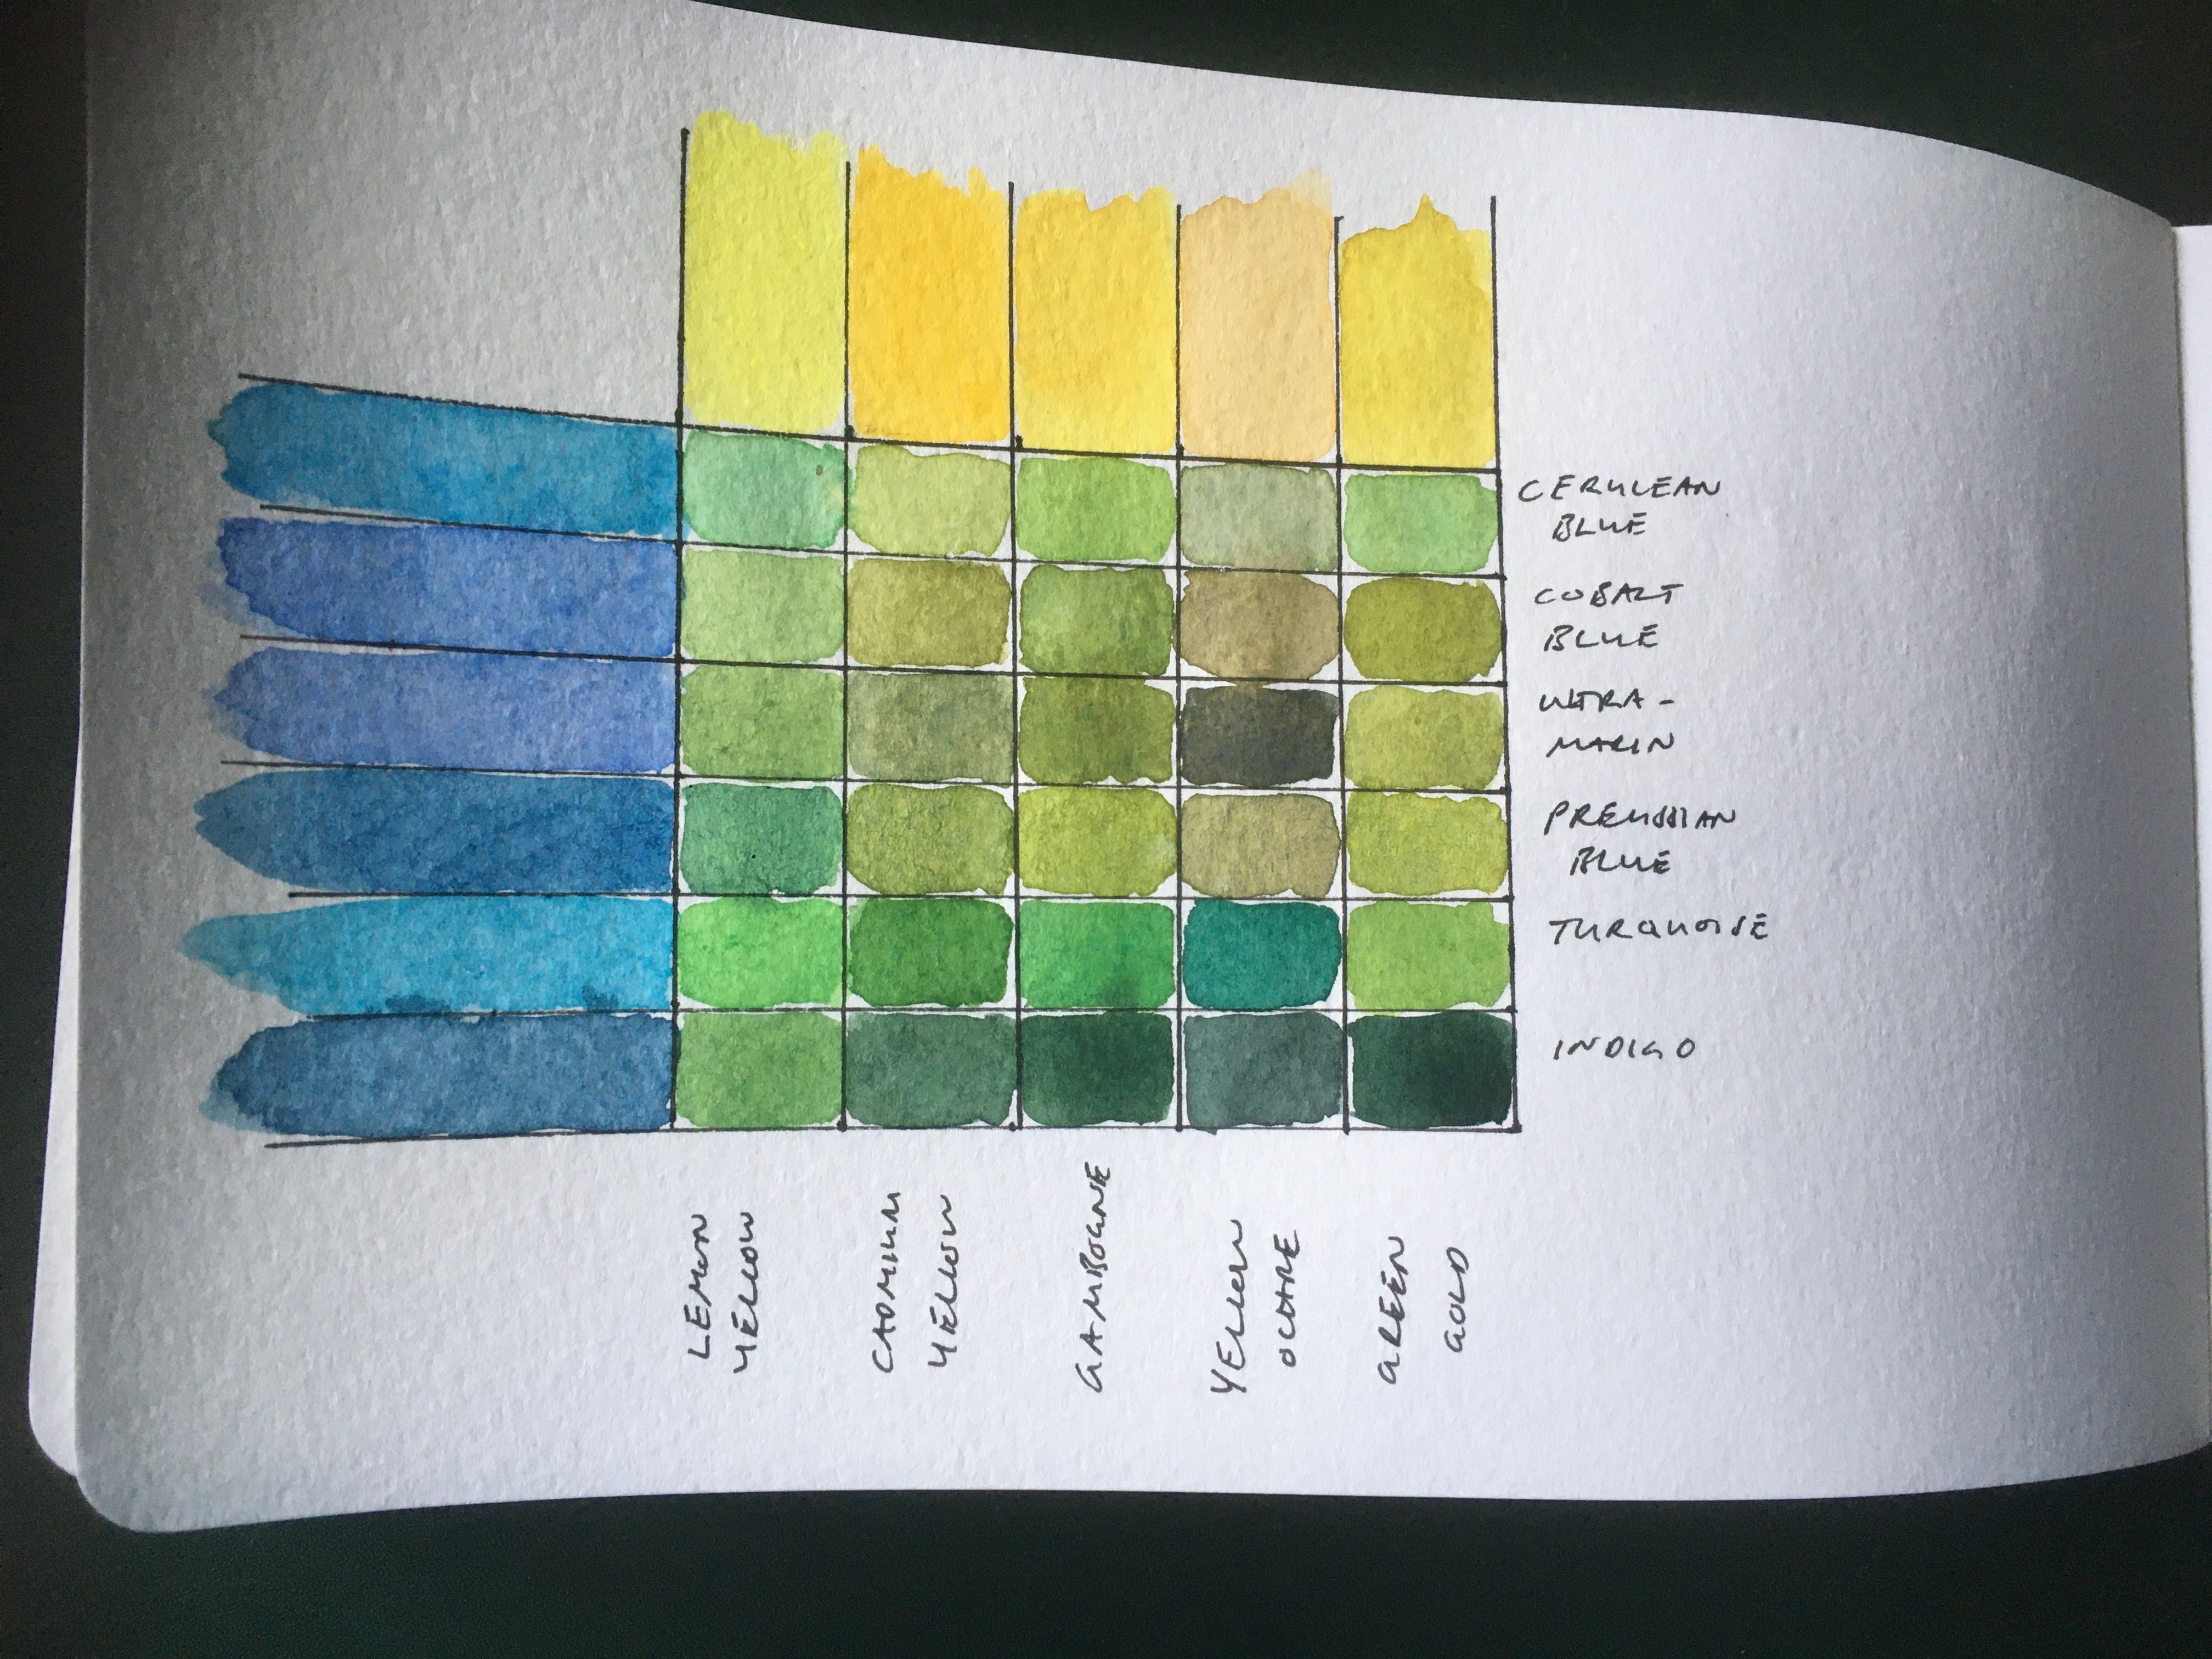 CERULEAN
BLUE
COBALT
BLUE
ULTRA-
MARIN
PREUSSIAN
BLUE
TURQUOISE
INDIGO
LEMON
YELLOW
CADMIUM
YELLOW
GAMBOGNE
YELLOW
OCHRE
GREEN
GOLD